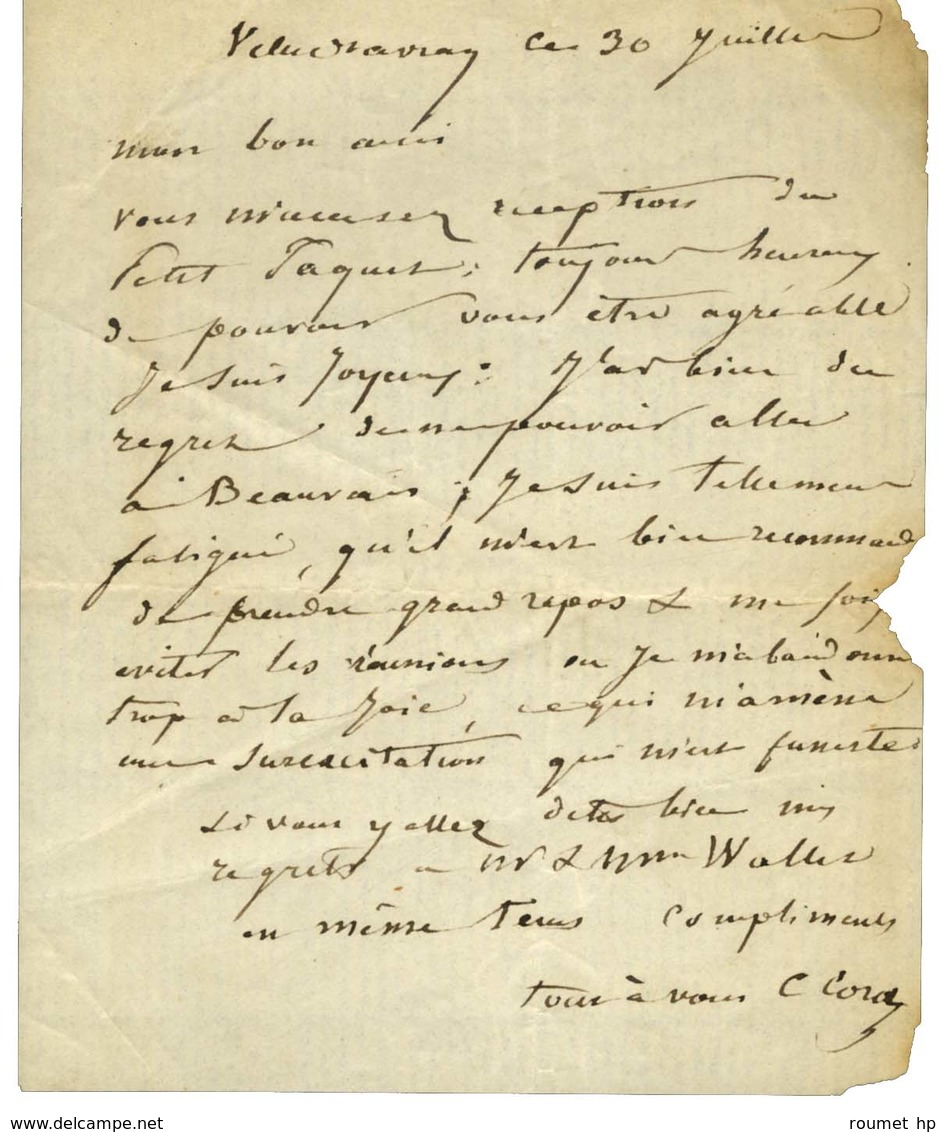 Villedavray ce 30 Juillet
mon bon ami
vous m'accusez reception du
Petit Paquet; toujour heureux
de pouvoir vous être agréable
Je suis Joyeux: J'ai bien du
regret de ne pouvoir aller
à Beauvais; Je suis tellement
fatigué, qu'il m'est bien recommandé
de prendre grand repos &
eviter les réunions ou Je m'abandonne
trop à la Joie, ce qui m'amène
une Surexcitation qui m'est funeste
Si vous y allez dites bien mes
regrets a Mr & Mme Wallet
en même tems compliments
tout à vous C Corot
www.delcampe.net
roumet hp